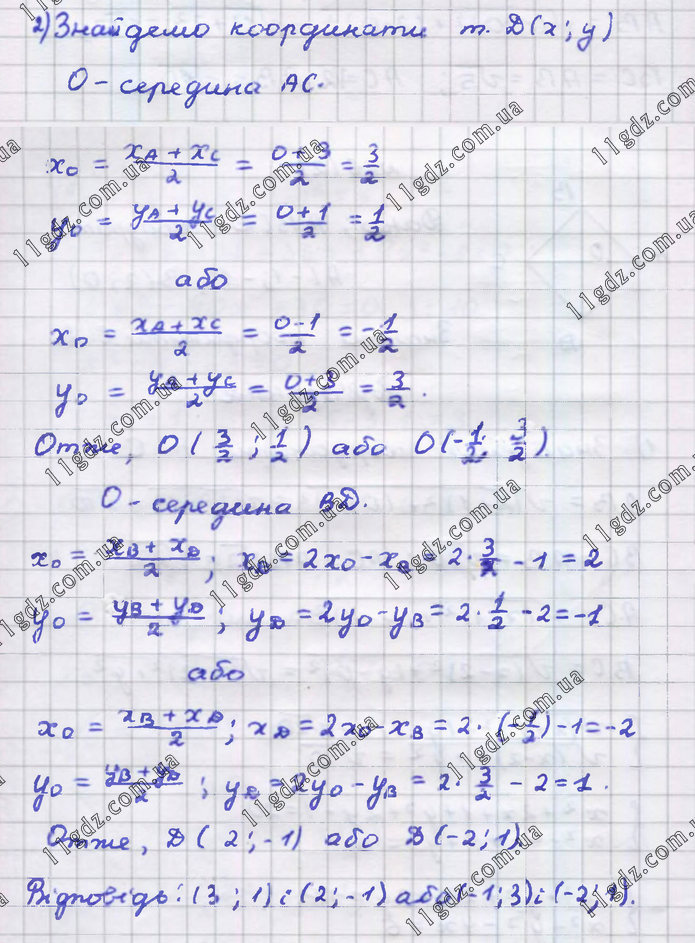 2) Знайдемо координати т. D(x; y)
O - середина AC.
x₀ = (x_A + x_C)/2 = (0+3)/2 = 3/2
y₀ = (y_A + y_C)/2 = (0+1)/2 = 1/2
або
x₀ = (x_A + x_C)/2 = (0-1)/2 = -1/2
y₀ = (y_A + y_C)/2 = (0+3)/2 = 3/2.
Отже, O(3/2; 1/2) або O(-1/2; 3/2)
O - середина BD.
x₀ = (x_B + x_D)/2; x_D = 2x₀ - x_B = 2·3/2 - 1 = 2
y₀ = (y_B + y_D)/2; y_D = 2y₀ - y_B = 2·1/2 - 2 = -1
або
x₀ = (x_B + x_D)/2; x_D = 2x₀ - x_B = 2·(-1/2) - 1 = -2
y₀ = (y_B + y_D)/2; y_D = 2y₀ - y_B = 2·3/2 - 2 = 1.
Отже, D(2; -1) або D(-2; 1).
Відповідь: (3; 1) і (2; -1) або (-1; 3) і (-2; 1).
11gdz.com.ua